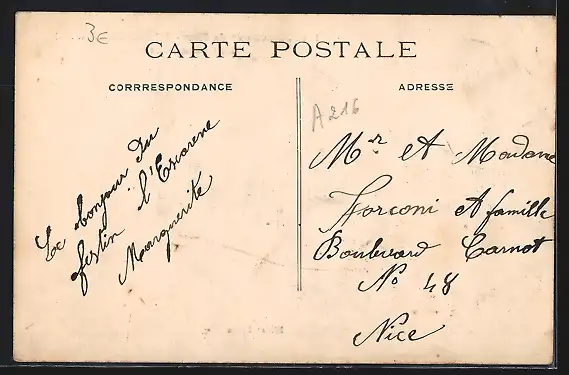 3€
CARTE POSTALE
CORRRESPONDANCE
ADRESSE
A216
Le bonjour du
festin l'Escarene
Marguerite
Mr et Madame
Forconi et famille
Boulevard Carnot
No 48
Nice